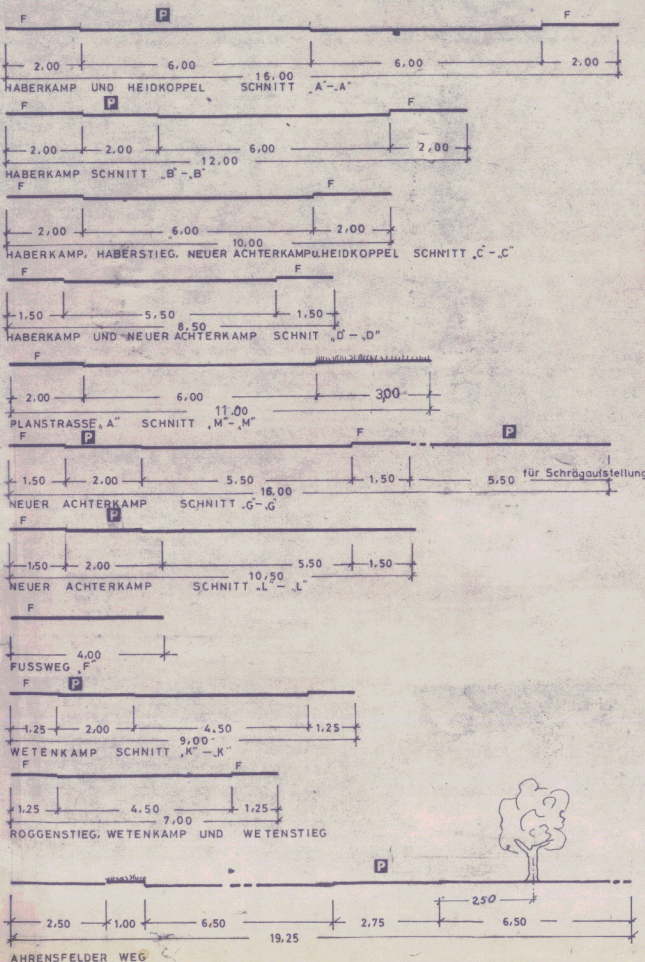 F P F
2.00 6,00 6,00 2.00
16.00
HABERKAMP UND HEIDKOPPEL SCHNITT „A"-„A"
F P F
2.00 2.00 6.00 2,00
12.00
HABERKAMP SCHNITT „B"-„B"
F F
2,00 6,00 2,00
10,00
HABERKAMP, HABERSTIEG, NEUER ACHTERKAMP u. HEIDKOPPEL SCHNITT „C"-„C"
F F
1,50 5,50 1,50
8,50
HABERKAMP UND NEUER ACHTERKAMP SCHNIT „D"-„D"
F
2.00 6,00 3,00
11.00
PLANSTRASSE „A" SCHNITT „M"-„M"
F P F P
1,50 2,00 5,50 1,50 5,50 für Schrägaufstellung
16,00
NEUER ACHTERKAMP SCHNITT „G"-„G"
F P
1,50 2,00 5,50 1,50
10,50
NEUER ACHTERKAMP SCHNITT „L"-„L"
F
4,00
FUSSWEG „F"
F P
1.25 2,00 4.50 1,25
9,00
WETENKAMP SCHNITT „K"-„K"
F F
1,25 4.50 1,25
7,00
ROGGENSTIEG, WETENKAMP UND WETENSTIEG
P
2,50
2,50 1,00 6,50 2,75 6,50
19,25
AHRENSFELDER WEG